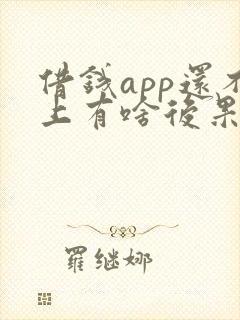 借錢app還不
上有啥後果
羅继娜